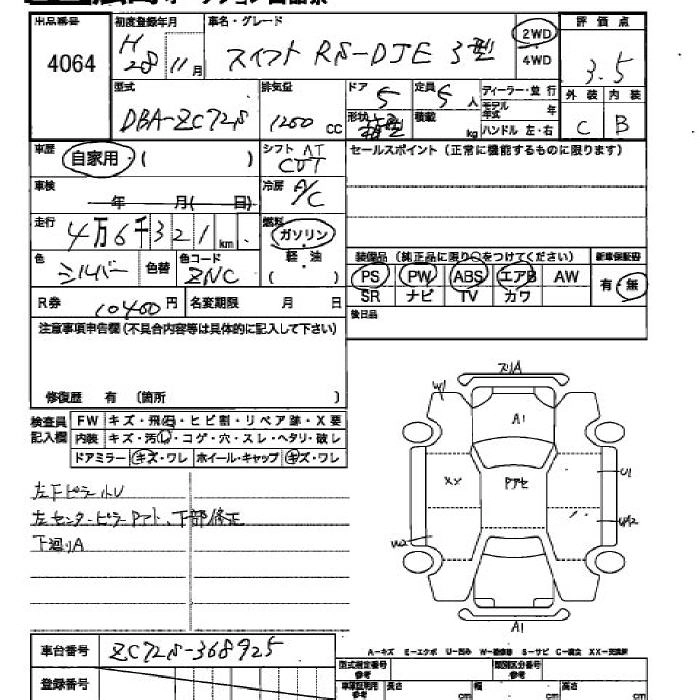 出品番号
4064
初度登録年月
H28 11月
車名・グレード
スイフト RS-DJE 3型
2WD
4WD
評価点
3.5
外装 内装
C B
型式
DBA-ZC72S
排気量
1200 CC
ドア 5
定員 5 人
形状 箱型
積載 kg
ディーラー・並行
モデル年式 年
ハンドル 左・右
車歴
自家用・( )
シフト AT
CVT
セールスポイント(正常に機能するものに限ります)
車検
年 月( 日)
冷房 A/C
走行
4万6千321km
燃料
ガソリン
軽・油
( )
色
シルバー
色替
色コード
ZNC
装備品 (純正品に限り○をつけてください)
新車保証書
PS PW ABS エアB AW
SR ナビ TV カワ
有・無
後日品
R券 10460円
名変期限 月 日
注意事項申告欄(不具合内容等は具体的に記入して下さい)
修復歴 有 〔箇所 〕
検査員
記入欄
FW キズ・飛石・ヒビ割・リペア跡・X要
内装 キズ・汚れ・コゲ・穴・スレ・ヘタリ・破レ
ドアミラー キズ・ワレ ホイール・キャップ キズ・ワレ
左Fピラー小U
左センターピラーPアト、下部修正
下廻りA
スリA
W1
A1
XX
Pアセ
U1
W2
A1
A-キズ E-エクボ U-凹み W-補修跡 S-サビ C-腐食 XX-交換済
車台番号
ZC72S-368925
登録番号
型式指定番号
参考
類別区分番号
参考
車庫証明用
参考
長さ cm
幅 cm
高さ cm